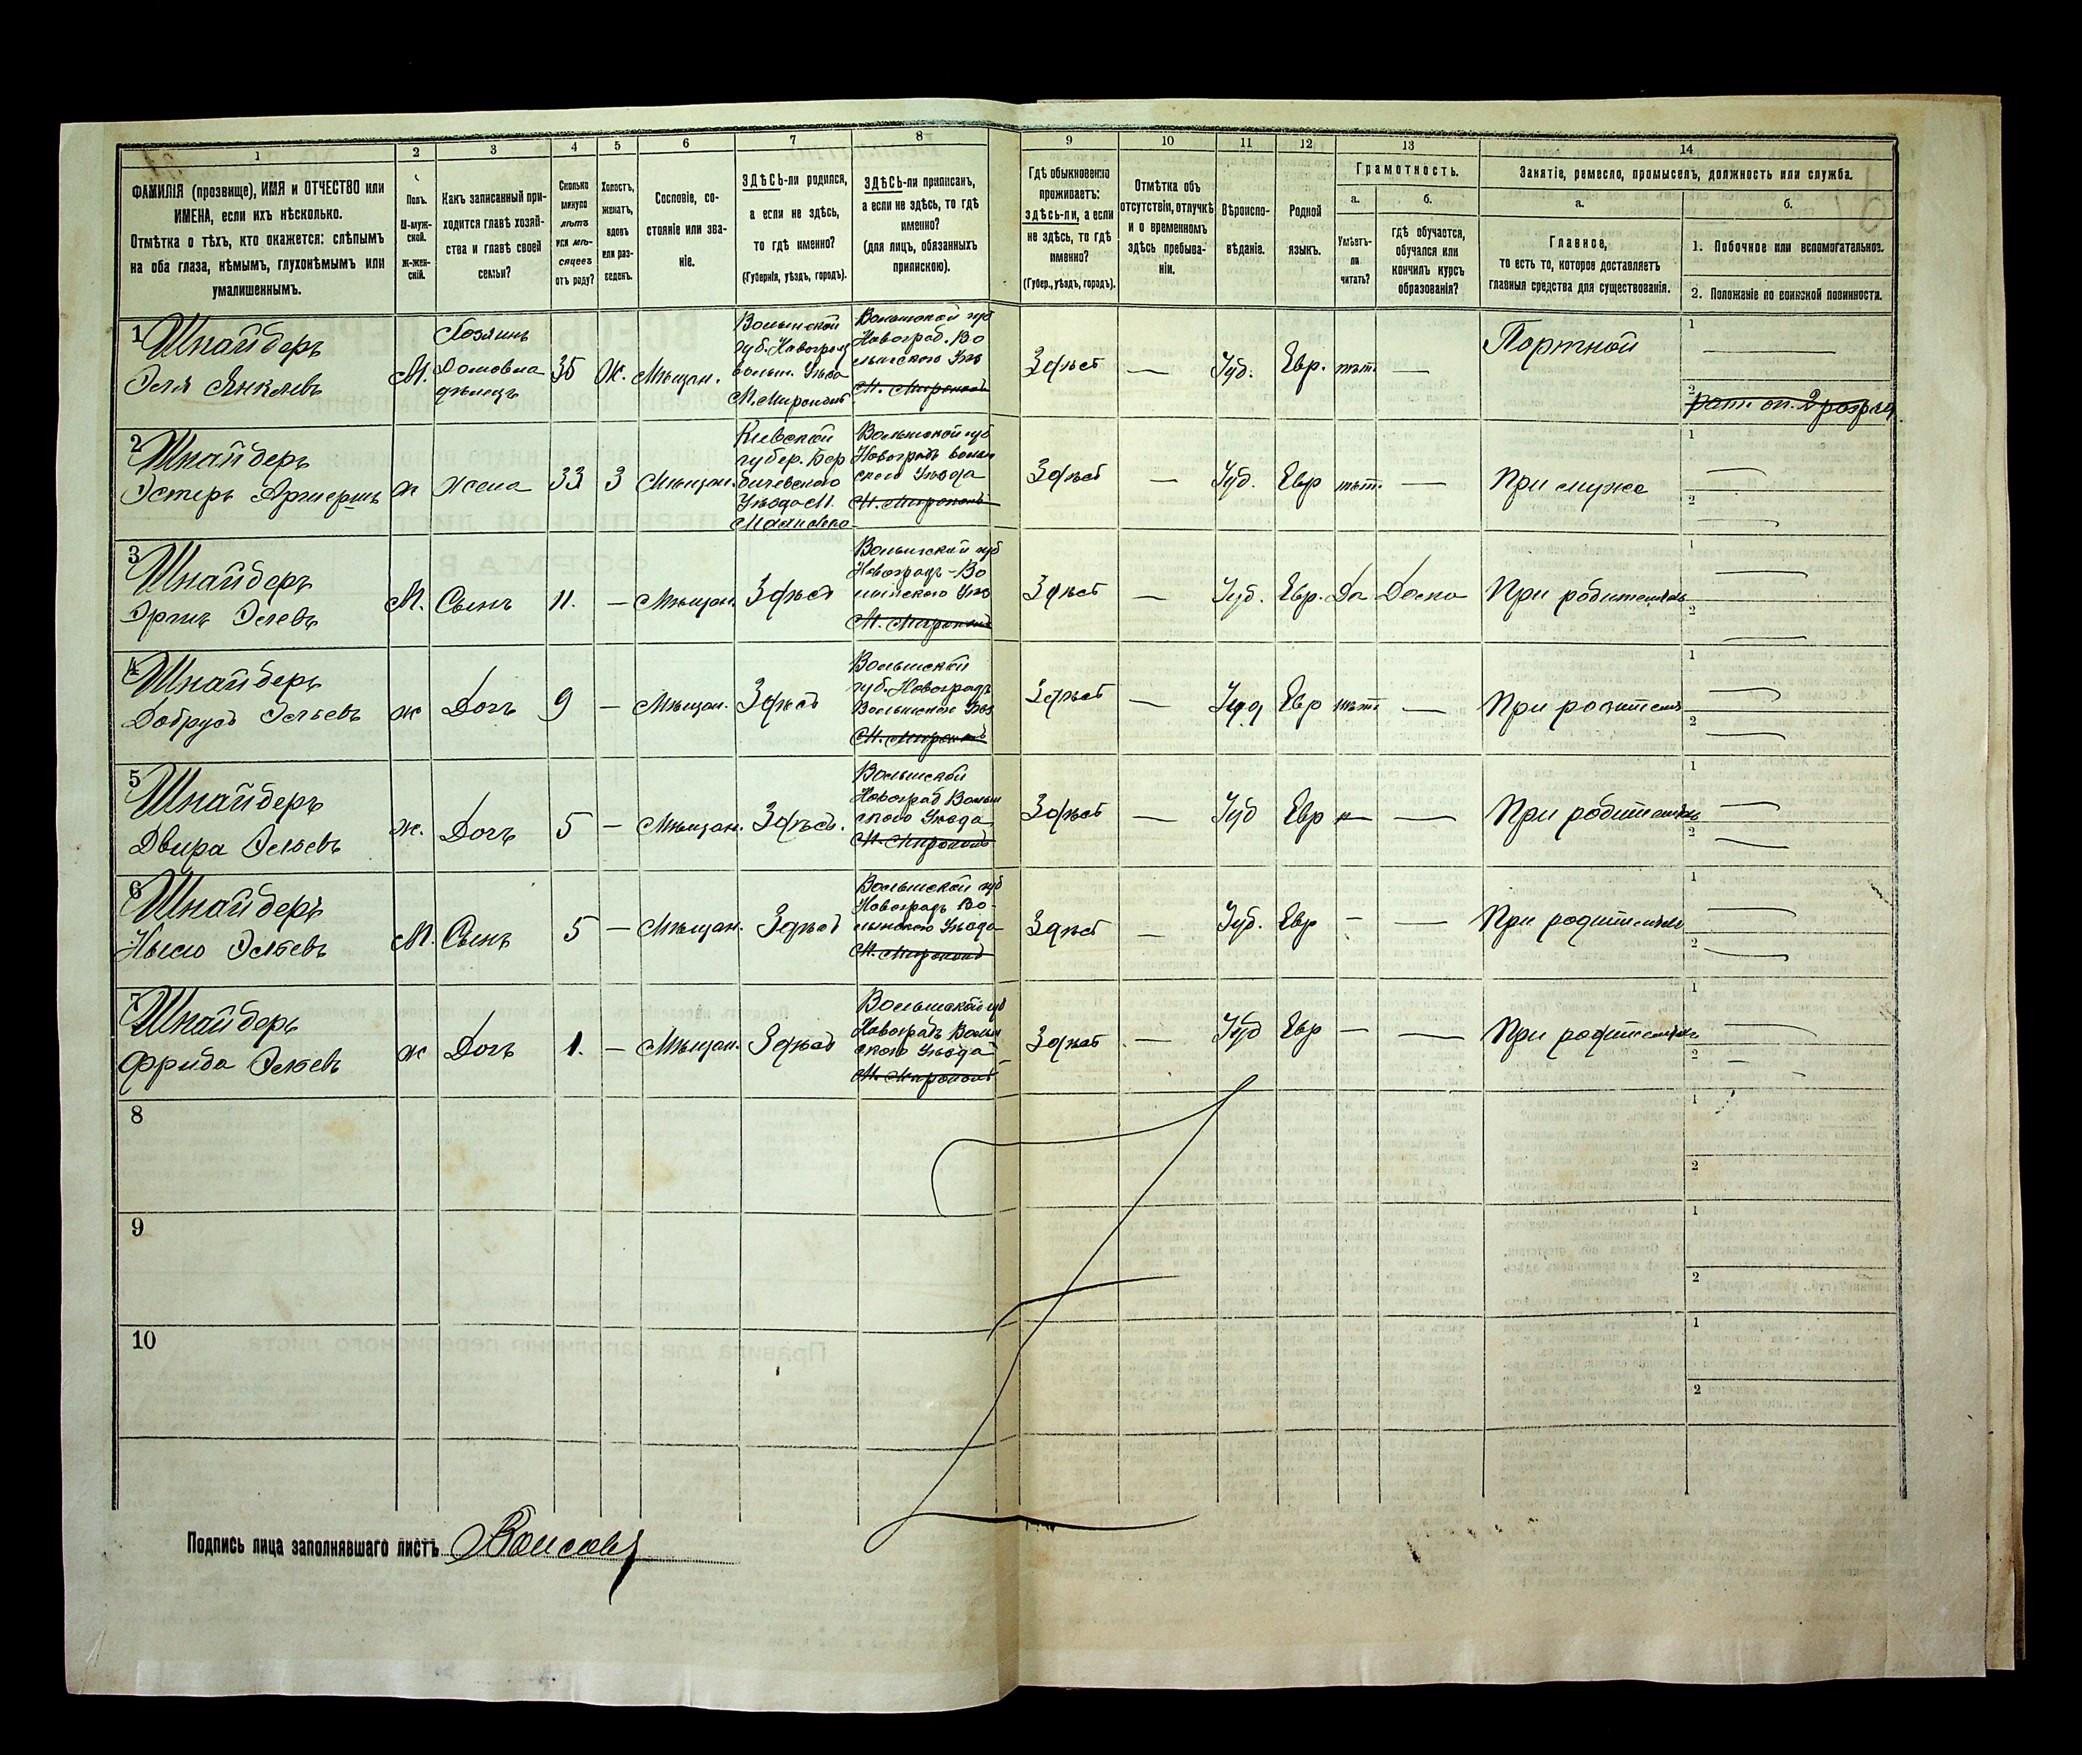 1
2
3
4
5
6
7
8
9
10
11
12
13
14
ФАМИЛІЯ (прозвище), ИМЯ и ОТЧЕСТВО или
ИМЕНА, если ихъ нѣсколько.
Отмѣтка о тѣхъ, кто окажется: слѣпымъ
на оба глаза, нѣмымъ, глухонѣмымъ или
умалишеннымъ.
Полъ.
М-муж-
ской.
Ж-жен-
скій.
Какъ записанный при-
ходится главѣ хозяй-
ства и главѣ своей
семьи?
Сколько
минуло
лѣтъ
или мѣ-
сяцевъ
отъ роду?
Холостъ,
женатъ,
вдовъ
или раз-
веденъ.
Сословіе, со-
стояніе или зва-
ніе.
ЗДѢСЬ-ли родился,
а если не здѣсь,
то гдѣ именно?
(Губернія, уѣздъ, городъ).
ЗДѢСЬ-ли приписан,
а если не здѣсь, то гдѣ
именно?
(для лицъ, обязанныхъ
припискою).
Гдѣ обыкновенно
проживаетъ:
здѣсь-ли, а если
не здѣсь, то гдѣ
именно?
(Губер., уѣздъ, городъ).
Отмѣтка объ
отсутствіи, отлучкѣ
и о временномъ
здѣсь пребыва-
ніи.
Вѣроиспо-
вѣданіе.
Родной
языкъ.
Грамотность.
а.
б.
Умѣетъ-
ли
читать?
гдѣ обучается,
обучался или
кончилъ курсъ
образованія?
Занятіе, ремесло, промыселъ, должность или служба.
а.
б.
Главное,
то есть то, которое доставляетъ
главныя средства для существованія.
1. Побочное или вспомогательное.
2. Положеніе по воинской повинности.
1
Шнайдеръ
Эля Янкелевъ
М.
Хозяинъ
Домовла
дѣлецъ
35
Ж.
Мѣщан.
Волынской
губ. Новоград
Волын. Уѣзда
М. Мирополь
Волынской губ
Новоград. Во
лынскаго Уѣз
М. Мирополь
Здѣсь
—
Іуд.
Евр.
нѣт.
—
Портной
1
2
рат. оп. 2 разряд
2
Шнайдеръ
Эстеръ
ж
Жена
33
З
Мѣщан.
Кіевской
губер. Бер
дичевскаго
Уѣзда М.
Махновка
Волынской губ
Новоградъ Волын
скаго Уѣзда
М. Мирополь
Здѣсь
—
Іуд.
Евр
нѣт.
—
При мужѣ
1
2
3
Шнайдеръ
Эршъ Элевъ
М.
Сынъ
11.
—
Мѣщан.
Здѣсь
Волынской губ
Новоградъ-Во
лынскаго Уѣз
М. Мирополь
Здѣсь
—
Іуд.
Евр.
Да
Дома
При родителяхъ
1
2
4
Шнайдеръ
Добрусь Эльевъ
ж
Дочь
9
—
Мѣщан.
Здѣсь
Волынской
губ. Новоградъ
Волынскаго Уѣз
М. Мирополь
Здѣсь
—
Іуд
Евр
нѣт.
—
При родителяхъ
1
2
5
Шнайдеръ
Двейра Эльевъ
ж.
Дочь
5
—
Мѣщан.
Здѣсь.
Волынской
Новоград Волын
скаго Уѣзда
М. Мирополь
Здѣсь
—
Іуд
Евр
н
—
При родителяхъ
1
2
6
Шнайдеръ
Эльевъ
М.
Сынъ
5
—
Мѣщан.
Здѣсь
Волынской губ
Новоградъ Во-
лынскаго Уѣзда
М. Мирополь
Здѣсь
—
Іуд.
Евр
—
—
При родителяхъ
1
2
7
Шнайдеръ
Фрида Эльевъ
ж
Дочь
1.
—
Мѣщан.
Здѣсь
Волынской губ
Новоградъ Волын
скаго Уѣзда
М. Мирополь
Здѣсь
—
Іуд
Евр
—
—
При родителяхъ
1
2
8
1
2
9
1
2
10
1
2
Подпись лица заполнявшаго листъ